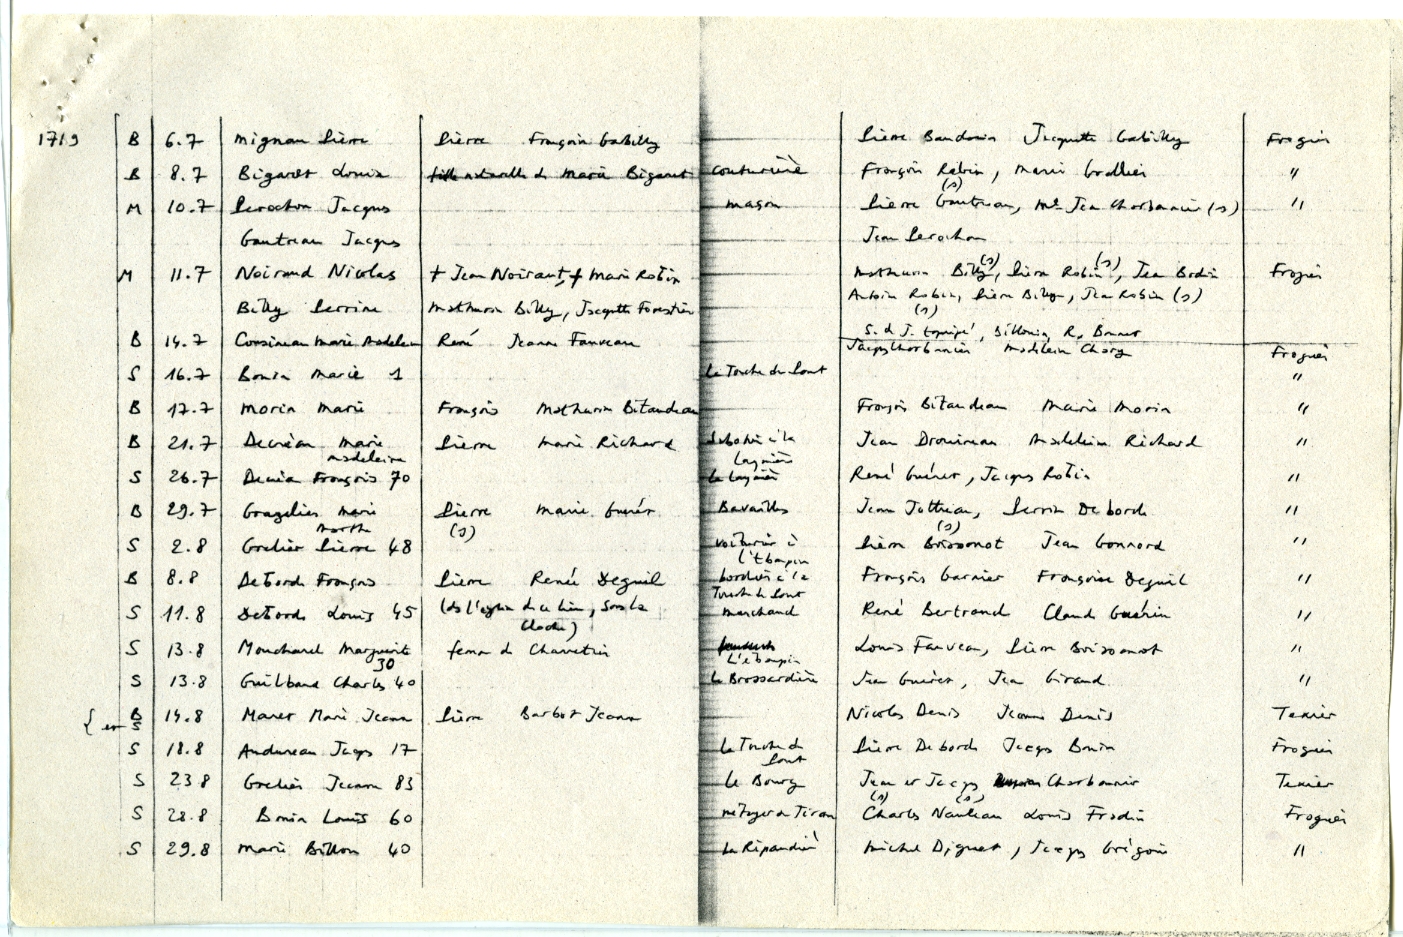 1719 B 6.7 Mignan Pierre Pierre Françoise Gabilly Pierre Baudouin Jacquette Gabilly Froger
B 8.7 Bigaret Louise fille naturelle de Marie Bigaret couturière François Robin, Marie Grollier "
(s)
M 10.7 Perochon Jacques maçon Pierre Gautreau, Me Jean Charbonnier (s) "
Gautreau Jacques Jean Perochon
M 11.7 Noiraud Nicolas + Jean Noiraut, + Marie Robin Mathurin Billy (s), Pierre Robin (s), Jean Bodin Froger
Billy Perrine Mathurin Billy, Jacquette Forestier Antoine Robin, Pierre Billy, Jean Robin (s)
(s)
S. de J. , Billonin, R. Bonnet
B 14.7 Cousineau Marie Madeleine René Jeanne Fauveau Jacques Charbonnier Madeleine Froger
S 16.7 Bonin Marie 1 La Touche du Pont "
B 17.7 Morin Marie François Mathurine Bitaudeau François Bitaudeau Marie Morin "
B 21.7 Marie Pierre Marie Richard à la Jean Drouineau Madeleine Richard "
Madeleine
S 26.7 François 70 René Guéret, Jacques Robin "
B 29.7 Grazelier Marie Pierre Marie Guéret Bavailles Jean , Perrine Debord "
Marthe (s) (s)
S 2.8 Grelier Pierre 48 voiturier à Pierre Brissonet Jean Gonnord "
l'Ebaupin
B 8.8 Debords François Pierre Renée Deguil bordier à la François Garnier Françoise Deguil "
Touche du Pont
S 11.8 Debords Louis 45 (ds l'église de ce lieu, sous la marchand René Bertrand Claude Guérin "
cloche)
S 13.8 Mouchard Marguerite femme de Charretier Louis Fauveau, Pierre Brissonet "
30 L'ebaupin
S 13.8 Guilbaud Charles 40 La Brossardière Jean Guéret, Jean Giraud "
{ et B 14.8 Maret Marie Jeanne Pierre Barbot Jeanne Nicolas Denis Jeanne Denis Texier
S
S 18.8 Audureau Jacques 17 La Touche du Pierre Debords Jacques Bonin Froger
Pont
S 23.8 Grelier Jeanne 83 Le Bourg Jean et Jacques Charbonnier Texier
(s) (s)
S 28.8 Bonin Louis 60 métayer de Tiran Charles Nauleau Louis Frodin Froger
S 29.8 Marie Billon 40 La Ripaudière Michel Diguet, Jacques Grégoire "